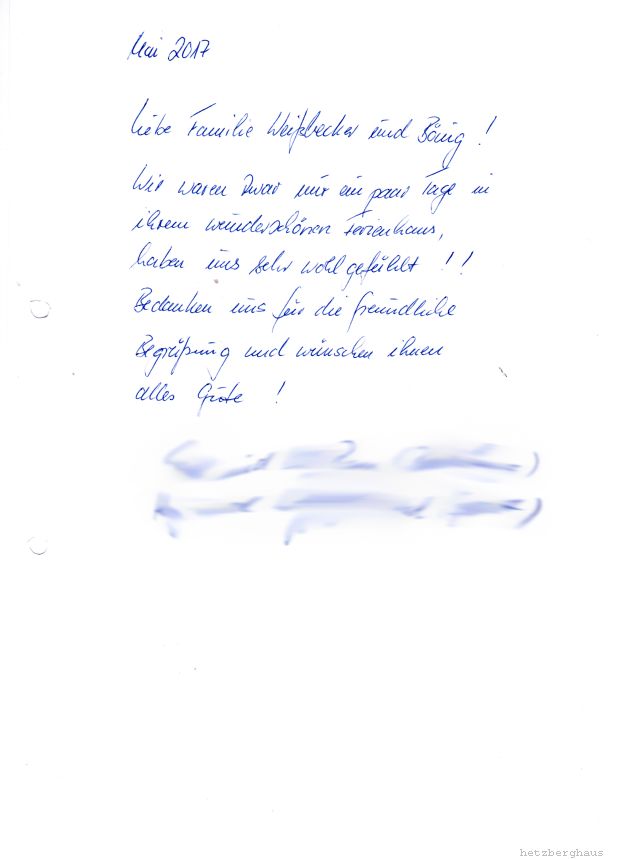 Mai 2017
Liebe Familie Weißbecker und Bönig !
Wir waren zwar nur ein paar Tage in
ihrem wunderschönen Ferienhaus,
haben uns sehr wohl gefühlt !!
Bedanken uns für die freundliche
Begrüßung und wünschen ihnen
alles Gute !
hetzberghaus